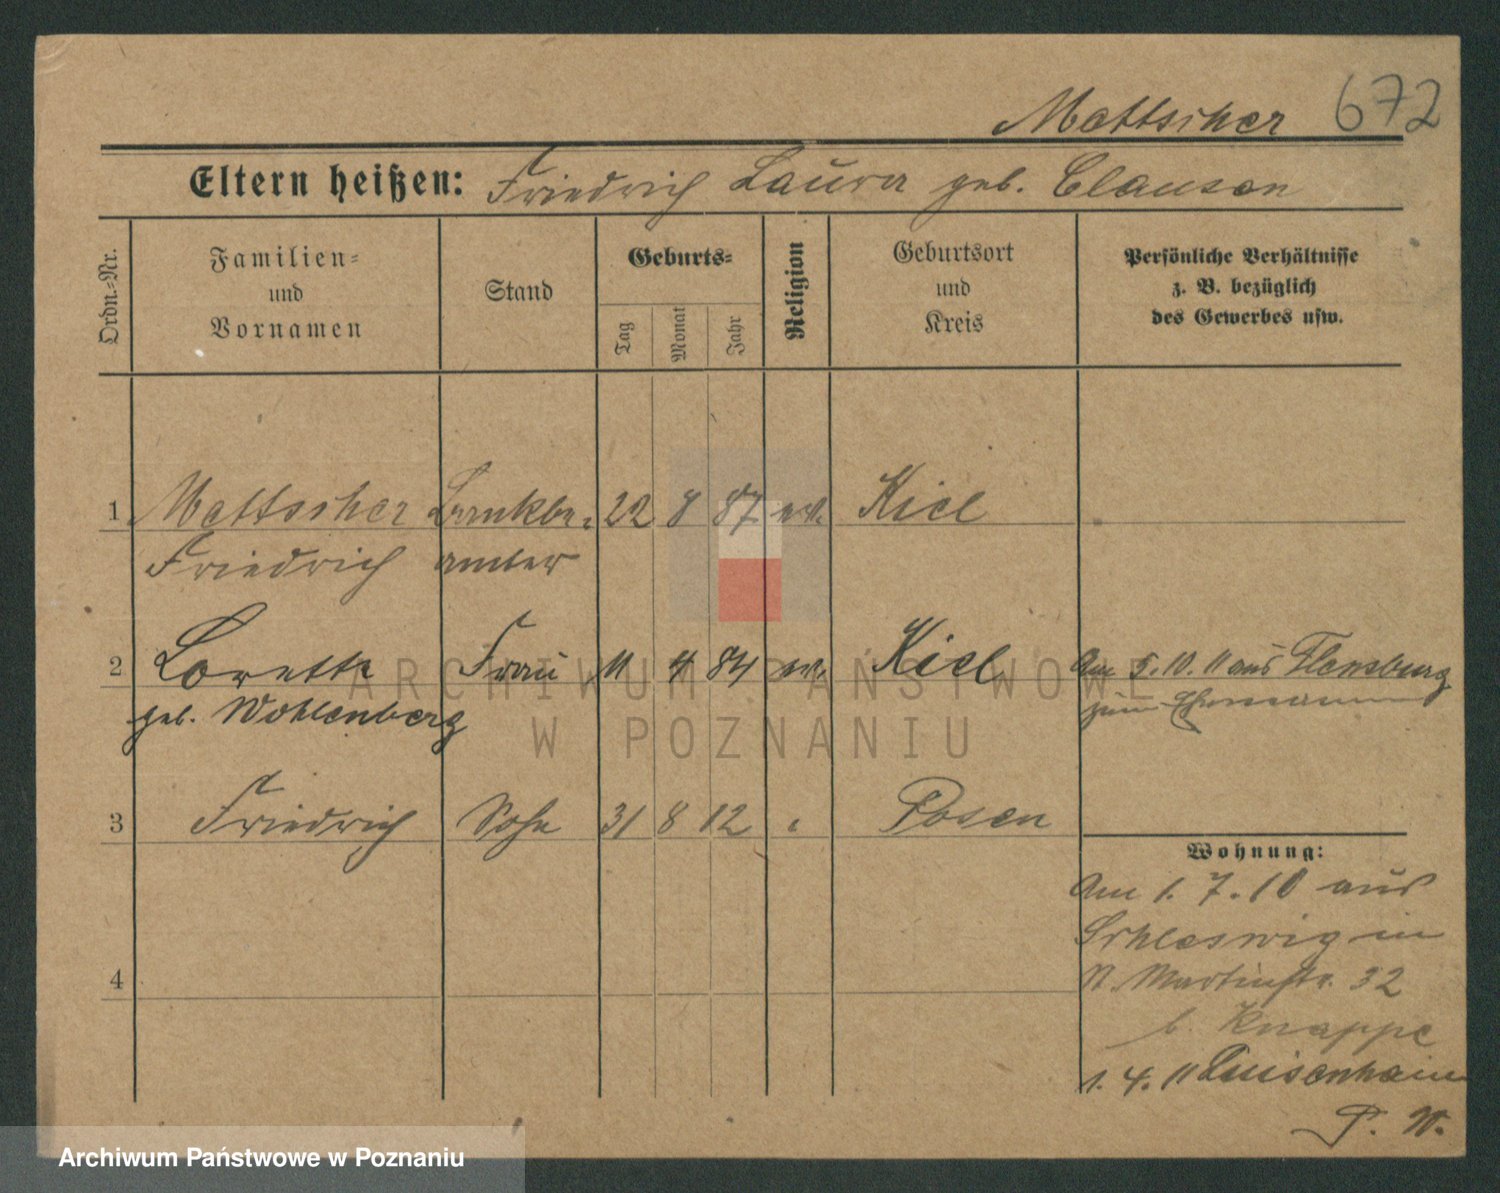 Mattscher 672
Eltern heißen: Friedrich Laura geb. Clausen
Ordn.-Nr.
Familien- und Vornamen
Stand
Geburts-
Tag
Monat
Jahr
Religion
Geburtsort und Kreis
Persönliche Verhältnisse
z. B. bezüglich
des Gewerbes usw.
1 Mattscher Bankbe- 22 8 87 ev. Kiel
Friedrich amter
2 Lorette Frau 11 4 84 ev. Kiel Am 5. 10. 11 aus Flensburg
geb. Wohlenberg zum Ehemann
3 Friedrich Sohn 31 8 12 Posen
Wohnung:
Am 1. 7. 10 aus
Schleswig in
St. Martinstr. 32
b. Knappe
4
1. 4. 11 Luisenhain
P. W.
ARCHIWUM PAŃSTWOWE
W POZNANIU
Archiwum Państwowe w Poznaniu